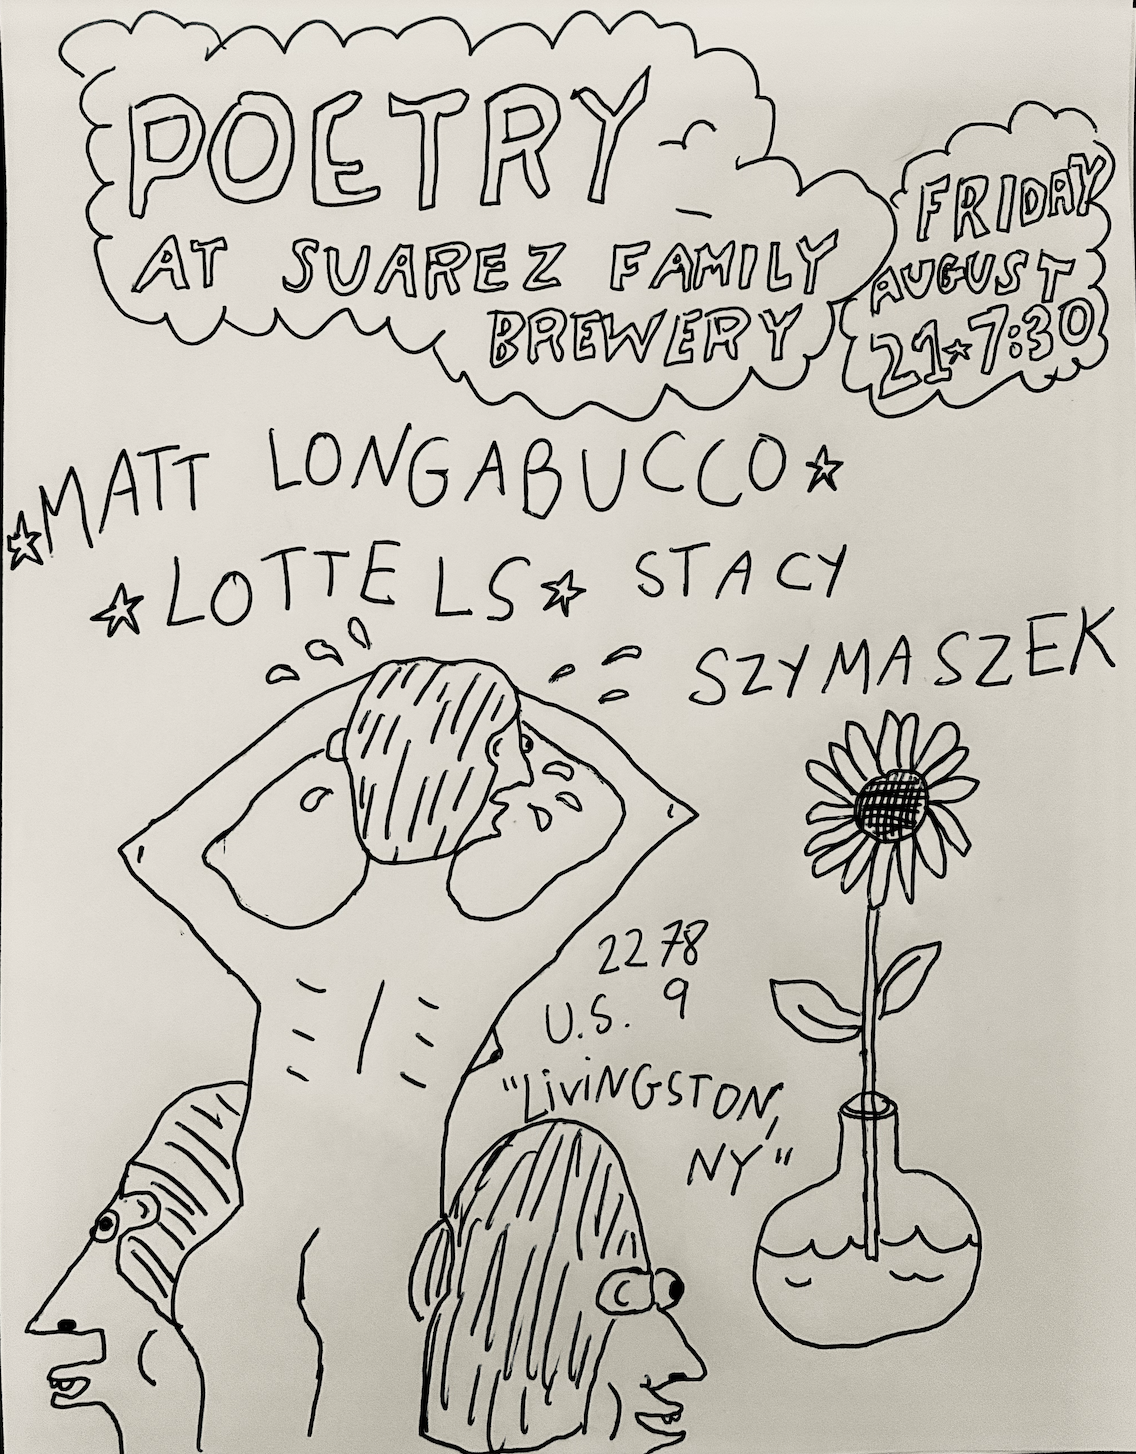 POETRY
AT SUAREZ FAMILY
BREWERY
FRIDAY
AUGUST
21☆7:30
☆MATT LONGABUCCO☆
☆LOTTE L S☆ STACY
SZYMASZEK
2278
U.S. 9
"LiviNGSTON,
NY"